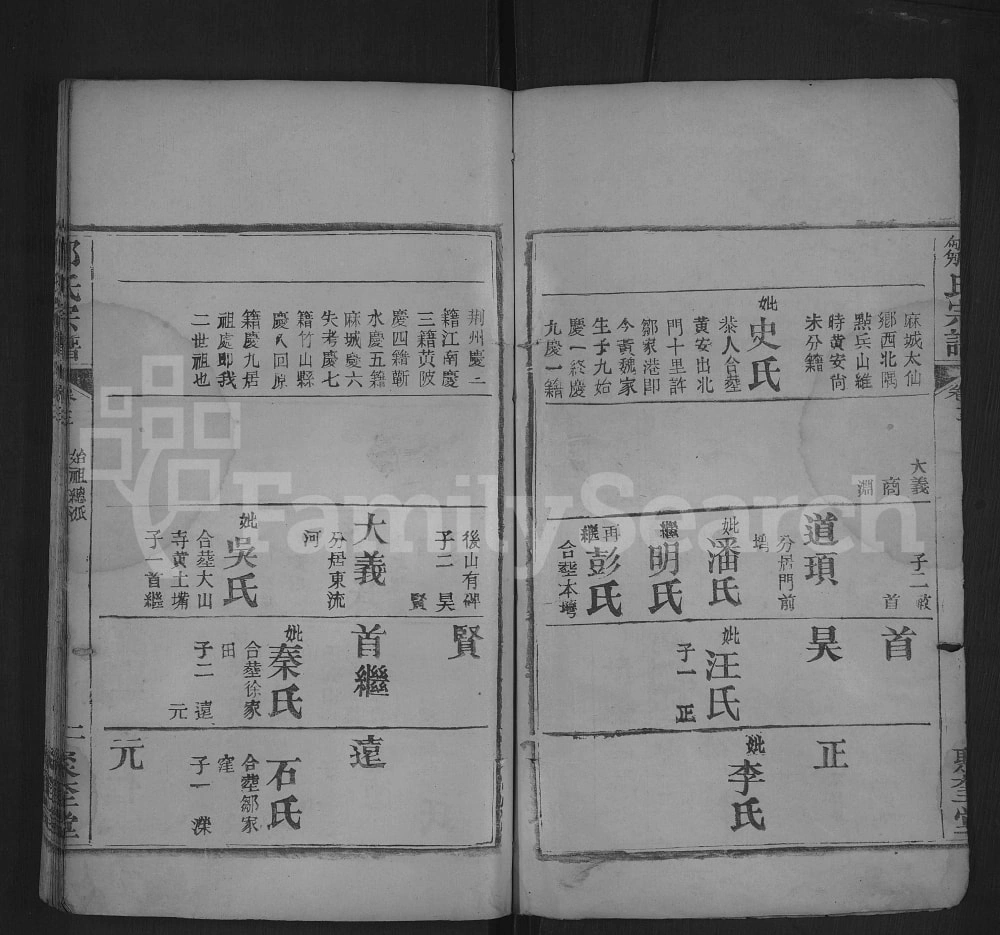 氏宗譜
卷
麻城太仙
鄉西北隅
點兵山維
時黃安尚
未分籍
妣史氏
恭人合塟
黃安出北
門十里許
鄒家港即
今黃魏家
生子九始
慶一終慶
九慶一籍
大義
商
淵
道頊
子二教
首
分居門前
塆
妣潘氏
繼明氏
再繼彭氏
合塟本塆
首
昊
妣汪氏
子一
正
正
妣李氏
聚奎堂
荆州慶二
籍江南慶
三籍黃陂
慶四籍蘄
水慶五籍
麻城慶六
失考慶七
籍竹山縣
慶八回原
籍慶九居
祖處即我
二世祖也
後山有碑
子二
昊
賢
大義
分居東流
河
妣吳氏
合塟大山
寺黃土嘴
子
首繼
賢
首繼
妣秦氏
合塟徐家
田
子二
遠
元
遠
妣石氏
合塟鄒家
窪
子一
濼
元
氏宗譜
始祖總派
聚奎堂
FamilySearch